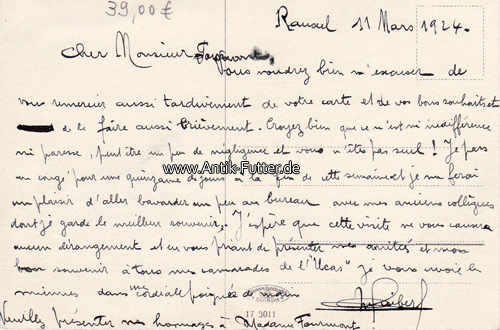 39,00€
11 Mars 1924.
Cher Monsieur
Vous voudrez bien m'excuser de
vous remercier aussi tardivement de votre carte et de vos bons souhaits et
de le faire aussi brièvement. Croyez bien que ce n'est ni indifférence
ni paresse, peut être un peu de négligence et vous n'ête pas seul ! Je pars
en congé pour une quinzaine de jours à la fin de cette semaine et je me ferai
un plaisir d'aller bavarder un peu au bureau avec mes anciens collègues
www.Antik-Futter.de
dont je garde le meilleur souvenir. J'espère que cette visite ne vous causera
aucun dérangement et en vous priant de présenter mes amitiés et mon
bon souvenir à tous mes camarades de l'"Ucas" je vous envoie les
miennes dans une cordiale poignée de main
17 3011
Veuillez présenter mes hommages à Madame Fourmont